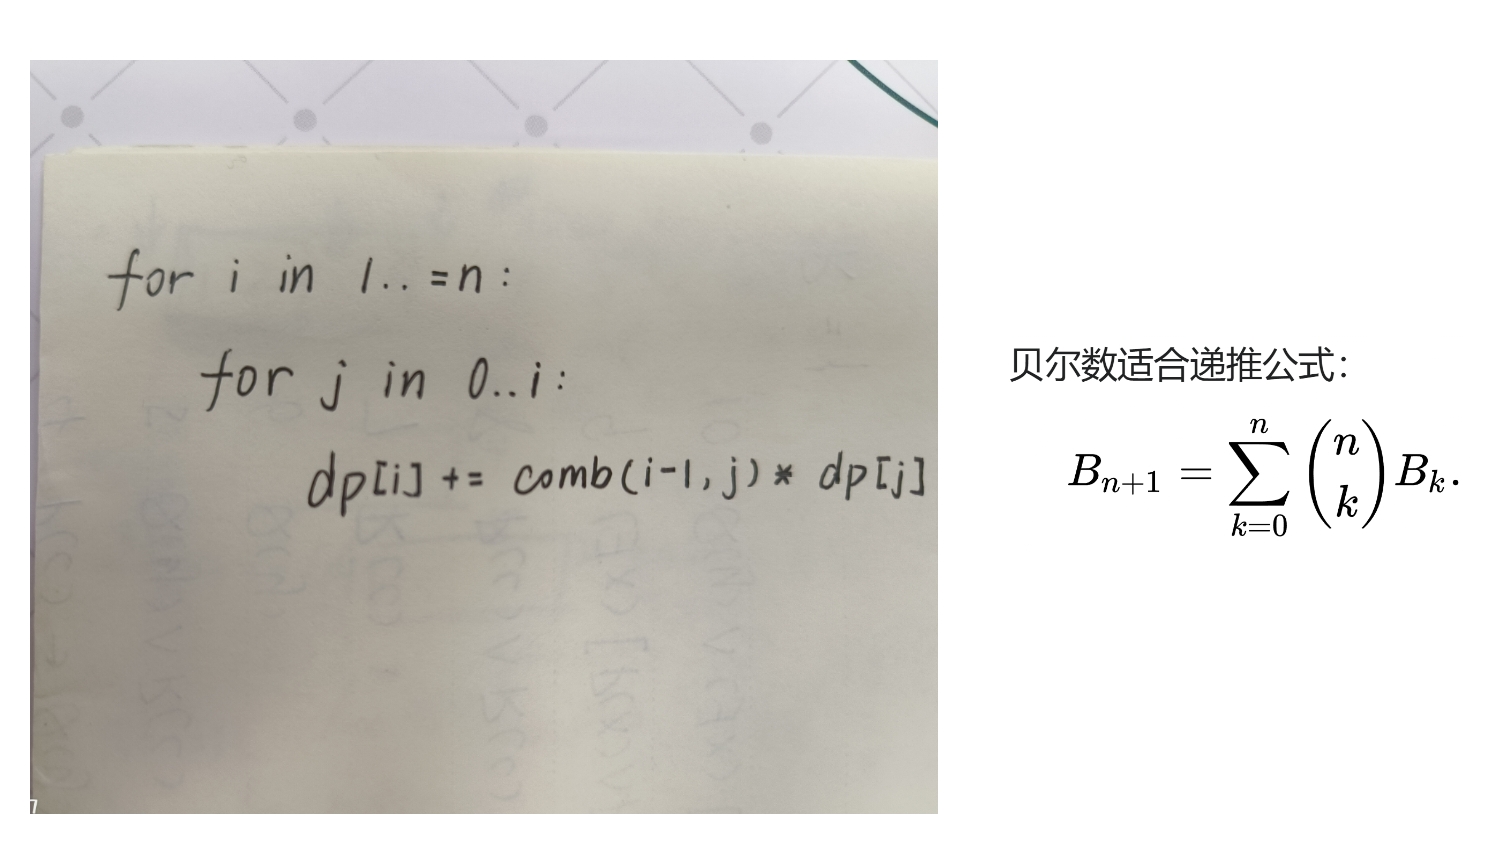 for i in 1..=n:
for j in 0..i:
dp[i] += comb(i-1,j)* dp[j]
贝尔数适合递推公式：
B_{n+1} = \sum_{k=0}^{n} \binom{n}{k} B_k.